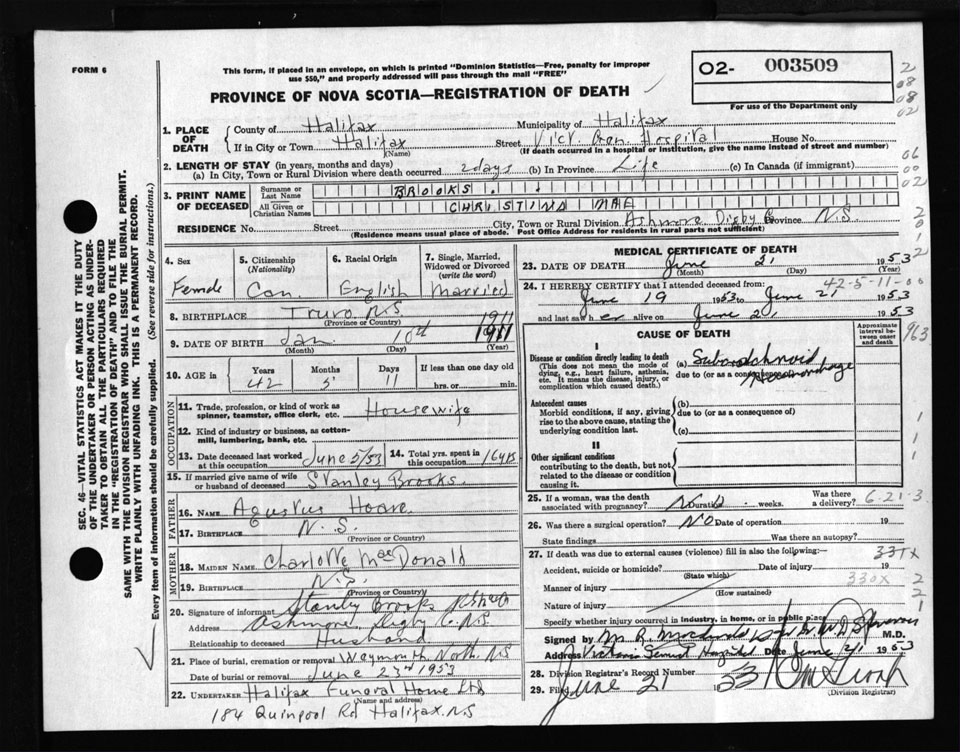 FORM 6
This form, if placed in an envelope, on which is printed "Dominion Statistics—Free, penalty for improper
use $50," and properly addressed will pass through the mail "FREE"
PROVINCE OF NOVA SCOTIA—REGISTRATION OF DEATH
O2- 003509
For use of the Department only
2
08
08
02
06
00
02
2
0
1
2
1. PLACE OF DEATH
County of Halifax Municipality of Halifax
If in City or Town Halifax Street Vict. Gen. Hospital House No.
(Name) (If death occurred in a hospital or institution, give the name instead of street and number)
2. LENGTH OF STAY (in years, months and days)
(a) In City, Town or Rural Division where death occurred 2 days (b) In Province Life (c) In Canada (if immigrant)
3. PRINT NAME OF DECEASED
Surname or Last Name BROOKS
All Given or Christian Names CHRISTINA MAE
RESIDENCE No. Street City, Town or Rural Division Ashmore Digby Co Province N.S.
(Residence means usual place of abode. Post Office Address for residents in rural parts not sufficient)
SEC. 46—VITAL STATISTICS ACT MAKES IT THE DUTY
OF THE UNDERTAKER OR PERSON ACTING AS UNDER-
TAKER TO OBTAIN ALL THE PARTICULARS REQUIRED
IN THE "REGISTRATION OF DEATH" AND TO FILE THE
SAME WITH THE DIVISION REGISTRAR WHO SHALL ISSUE THE BURIAL PERMIT.
WRITE PLAINLY WITH UNFADING INK. THIS IS A PERMANENT RECORD.
Every item of information should be carefully supplied. (See reverse side for instructions.)
4. Sex Female
5. Citizenship (Nationality) Can.
6. Racial Origin English
7. Single, Married, Widowed or Divorced (write the word) Married
8. BIRTHPLACE Truro N.S.
(Province or Country)
9. DATE OF BIRTH Jan. 10th 1911 1911
(Month) (Day) (Year)
10. AGE in Years 42 Months 5 Days 11 If less than one day old hrs. or min.
OCCUPATION
11. Trade, profession, or kind of work as spinner, teamster, office clerk, etc. Housewife
12. Kind of industry or business, as cotton-mill, lumbering, bank, etc.
13. Date deceased last worked at this occupation June 5/53 14. Total yrs. spent in this occupation 16 yrs
15. If married give name of wife or husband of deceased Stanley Brooks.
FATHER
16. NAME Agustus Hoare
17. BIRTHPLACE N.S.
(Province or Country)
MOTHER
18. MAIDEN NAME Charlotte MacDonald
19. BIRTHPLACE N.S.
(Province or Country)
20. Signature of informant Stanley Brooks
Address Ashmore, Digby Co. N.S.
Relationship to deceased Husband
21. Place of burial, cremation or removal Weymouth North. NS
Date of burial or removal June 23rd 1953
22. UNDERTAKER Halifax Funeral Home Ltd
(Name and address)
184 Quinpool Rd Halifax. N.S
MEDICAL CERTIFICATE OF DEATH
23. DATE OF DEATH June 21 1953
(Month) (Day) (Year)
42-5-11-00
24. I HEREBY CERTIFY that I attended deceased from:
June 19 1953 to June 21 1953
and last saw her alive on June 21 1953
CAUSE OF DEATH
Approximate interval between onset and death
963
I
Disease or condition directly leading to death
(This does not mean the mode of dying, e.g., heart failure, asthenia, etc. It means the disease, injury, or complication which caused death.)
(a) Subarachnoid
due to (or as a consequence of) Haemorrhage
Antecedent causes
Morbid conditions, if any, giving rise to the above cause, stating the underlying condition last.
(b)
due to (or as a consequence of)
(c)
1
1
1
II
Other significant conditions
contributing to the death, but not related to the disease or condition causing it.
25. If a woman, was the death associated with pregnancy? No Duration weeks. Was there a delivery?
6-21-3
26. Was there a surgical operation? No Date of operation 19
State findings Was there an autopsy?
27. If death was due to external causes (violence) fill in also the following:—
331X
Accident, suicide or homicide? Date of injury 19
(State which)
330X
2
2
1
Manner of injury
(How sustained)
Nature of injury
Specify whether injury occurred in industry, in home, or in public place
Signed by M.D.
Address Victoria General Hospital Date June 21 1953
28. Division Registrar's Record Number
29. Filed June 21 1953
(Division Registrar)